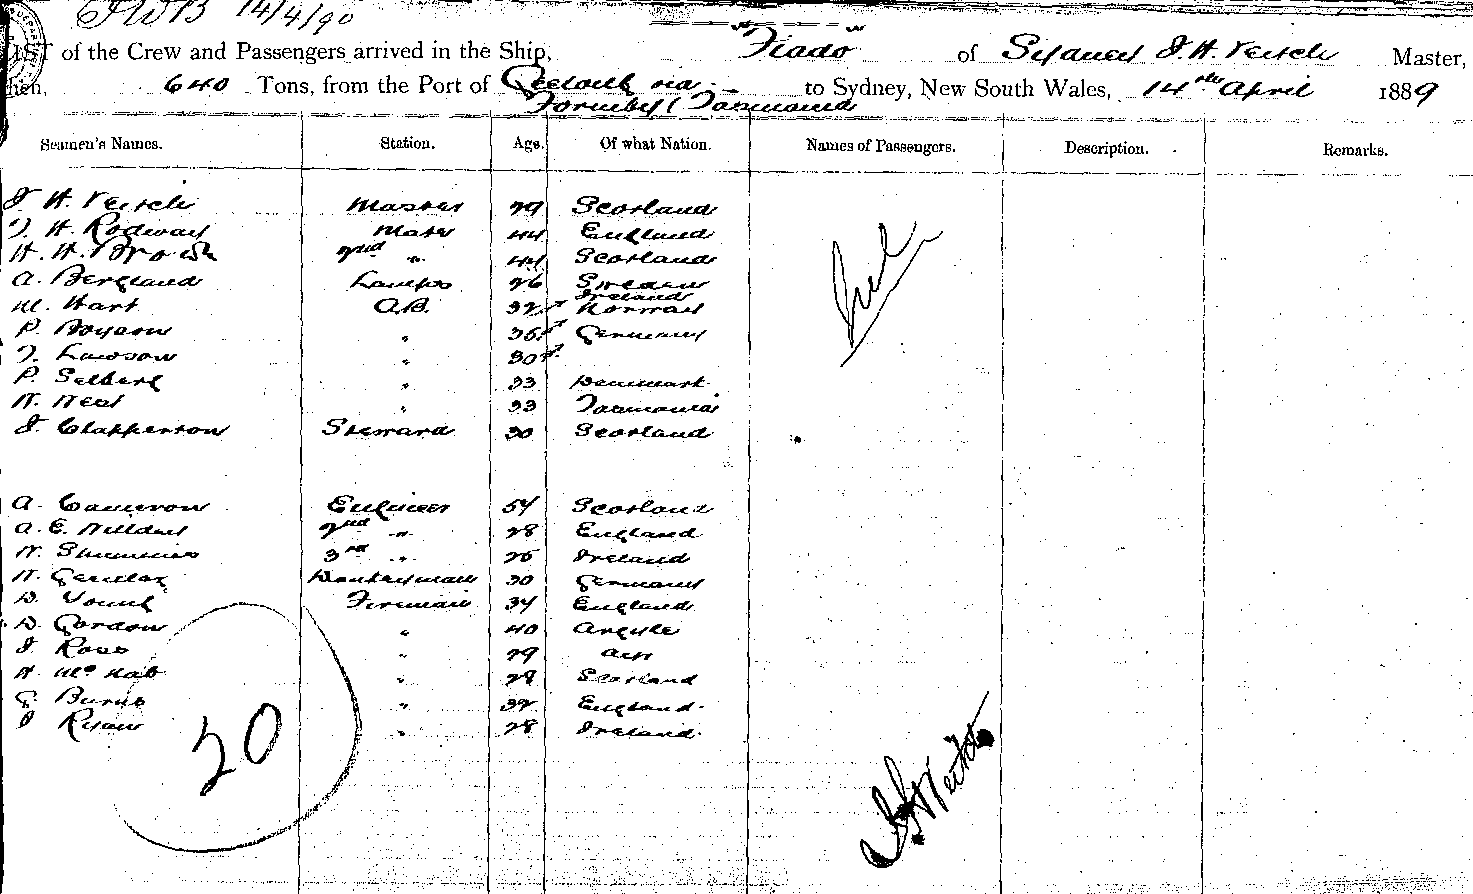 14/4/90
LIST of the Crew and Passengers arrived in the Ship, "Fiado" of Sydney J. H. Veitch Master,
then, 640 Tons, from the Port of Geelong via to Sydney, New South Wales, 14th April 1889
Formby (Tasmania
Seamen's Names. Station. Age. Of what Nation. Names of Passengers. Description. Remarks.
J. H. Veitch Master 29 Scotland
T. H. Rodway Mate 44 England
H. H. Brown 2nd " 44 Scotland
A. Bergland Lamps 26 Sweden
Ireland
M. Hart A.B. 32 Norway
P. Boysow " 35 Germany
T. Lawson " 30
P. Selberg " 33 Denmark
W. West " 33 Tasmania
J. Clapperton Steward 30 Scotland
Nil
A. Cameron Engineer 54 Scotland
A. E. 2nd " 28 England
W. 3rd " 25 Ireland
W. Donkeyman 30 Germany
D. Young Fireman 34 England
D. Gordon " 40 Argyle
J. Ross " 29
H. McNab " 28 Scotland
G. Burns " 32 England
J. Ryan " 28 Ireland
20
J H Veitch